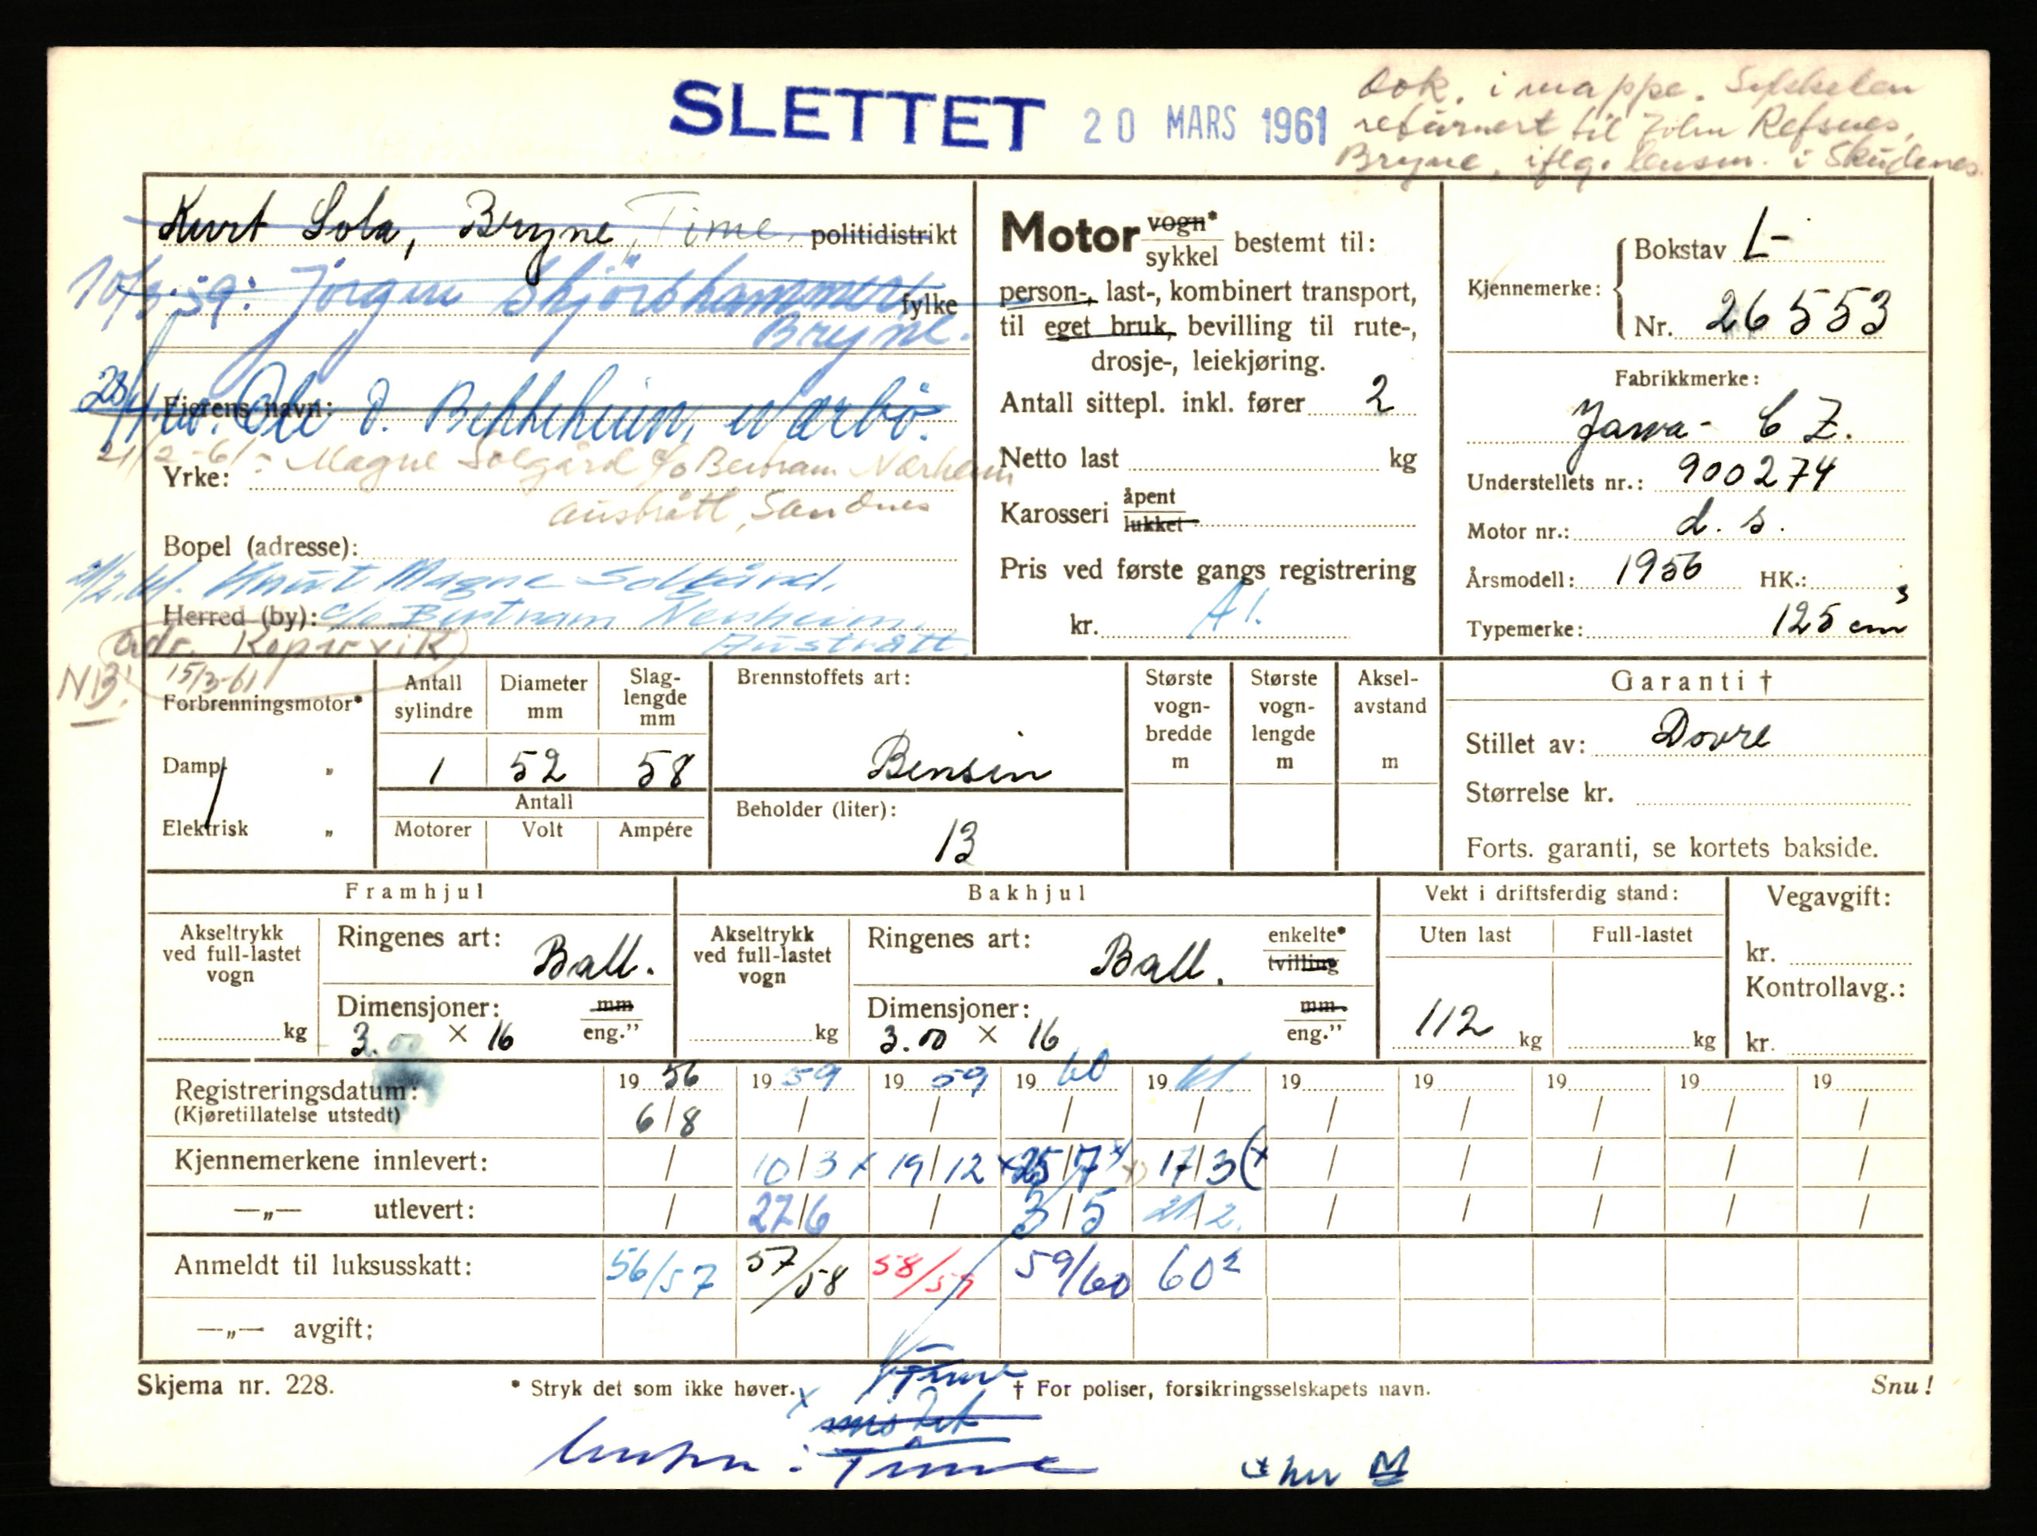 SLETTET 20 MARS 1961
Dok. i mappe. Sykkelen
returnert til John Refsnes,
Bryne, iflg. lensm. i Skudenes
Kurt Sola, Bryne, Time politidistrikt
10/3-59: Jörgen Skjörshammer fylke
Bryne.
Eierens navn: Ole O. Bekkeheim, Nærbö.
21/2-61:- Magne Solgård c/o Bertram Nærheim
Yrke:
Austrått, Sandnes
Bopel (adresse):
21/2.61. Knut Magne Solgård,
Herred (by): c/o Bertram Nærheim,
Austrått.
adr. Kopervik
15/3-61
NB!
Motor vogn* / sykkel bestemt til:
person-, last-, kombinert transport,
til eget bruk, bevilling til rute-,
drosje-, leiekjøring.
Antall sittepl. inkl. fører 2
Netto last kg
Karosseri åpent / lukket
Pris ved første gangs registrering
kr. A1.
Kjennemerke: Bokstav L-
Nr. 26553
Fabrikkmerke:
Jawa- C Z.
Understellets nr.: 900274
Motor nr.: d. s.
Årsmodell: 1956 HK.:
Typemerke: 125 cm³
Forbrenningsmotor*
Damp „
Elektrisk „
Antall sylindre Diameter mm Slaglengde mm
1 52 58
Antall
Motorer Volt Ampére
Brennstoffets art:
Bensin
Beholder (liter):
13
Største vognbredde m
Største vognlengde m
Akselavstand m
Garanti †
Stillet av: Dovre
Størrelse kr.
Forts. garanti, se kortets bakside.
Framhjul
Akseltrykk ved full-lastet vogn kg
Ringenes art: Ball.
Dimensjoner: mm / eng.”
3.00 × 16
Bakhjul
Akseltrykk ved full-lastet vogn kg
Ringenes art: Ball. enkelte* / tvilling
Dimensjoner: mm. / eng.”
3.00 × 16
Vekt i driftsferdig stand:
Uten last Full-lastet
112 kg kg
Vegavgift:
kr.
Kontrollavg.:
kr.
Registreringsdatum: 19 56 19 59 19 59 19 60 19 61 19 19 19 19 19
(Kjøretillatelse utstedt) 6/8 / / / / / / / / /
Kjennemerkene innlevert: / 10/3 x 19/12 x 25/7 x 17/3 (x / / / / /
—„— utlevert: / 27/6 / 3/5 21/2. / / / / /
Anmeldt til luksusskatt: 56/57 57/58 58/59 59/60 60²
—„— avgift:
Skjema nr. 228. * Stryk det som ikke høver. † For poliser, forsikringsselskapets navn. Snu!
Time
x mistet
i Time